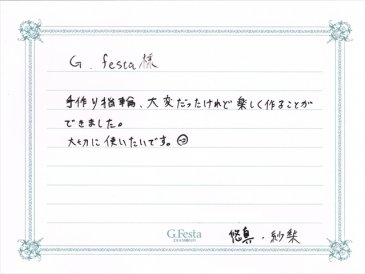 G.festa様
手作り指輪、大変だったけれど楽しく作ることが
できました。
大切に使いたいです。
G.Festa
悠真・紗